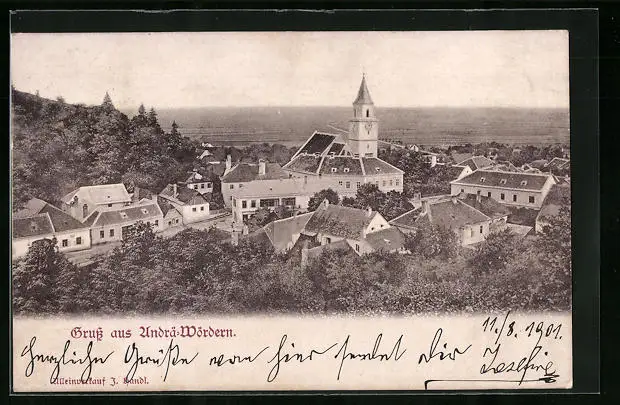 Gruß aus Andrä-Wördern.
11./8. 1901.
Herzliche Grüße von hier sendet dir
Josefine
Alleinverkauf J. Handl.